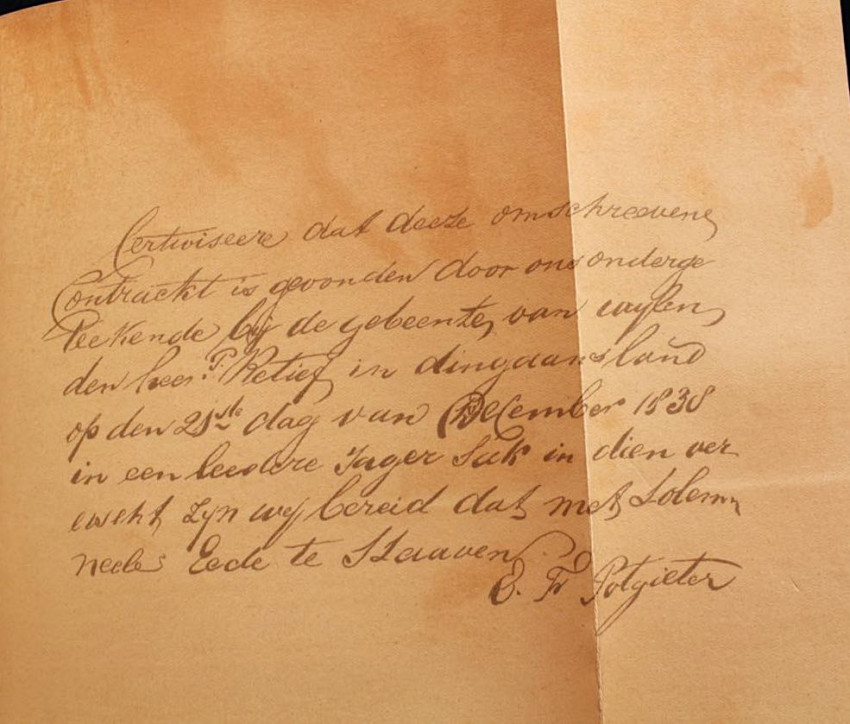 Certwiseere dat deeze omschreevene
Contrackt is gevonden door ons onderge
Teekende bij de gebeente van wylen
den heer P. Retief in dingaansland
op den 21ste dag van December 1838
in een leedere Jager Sak in dien ver
eweht zyn wy bereid dat met Solemn
neele Eede te Staaven
E. F Potgieter